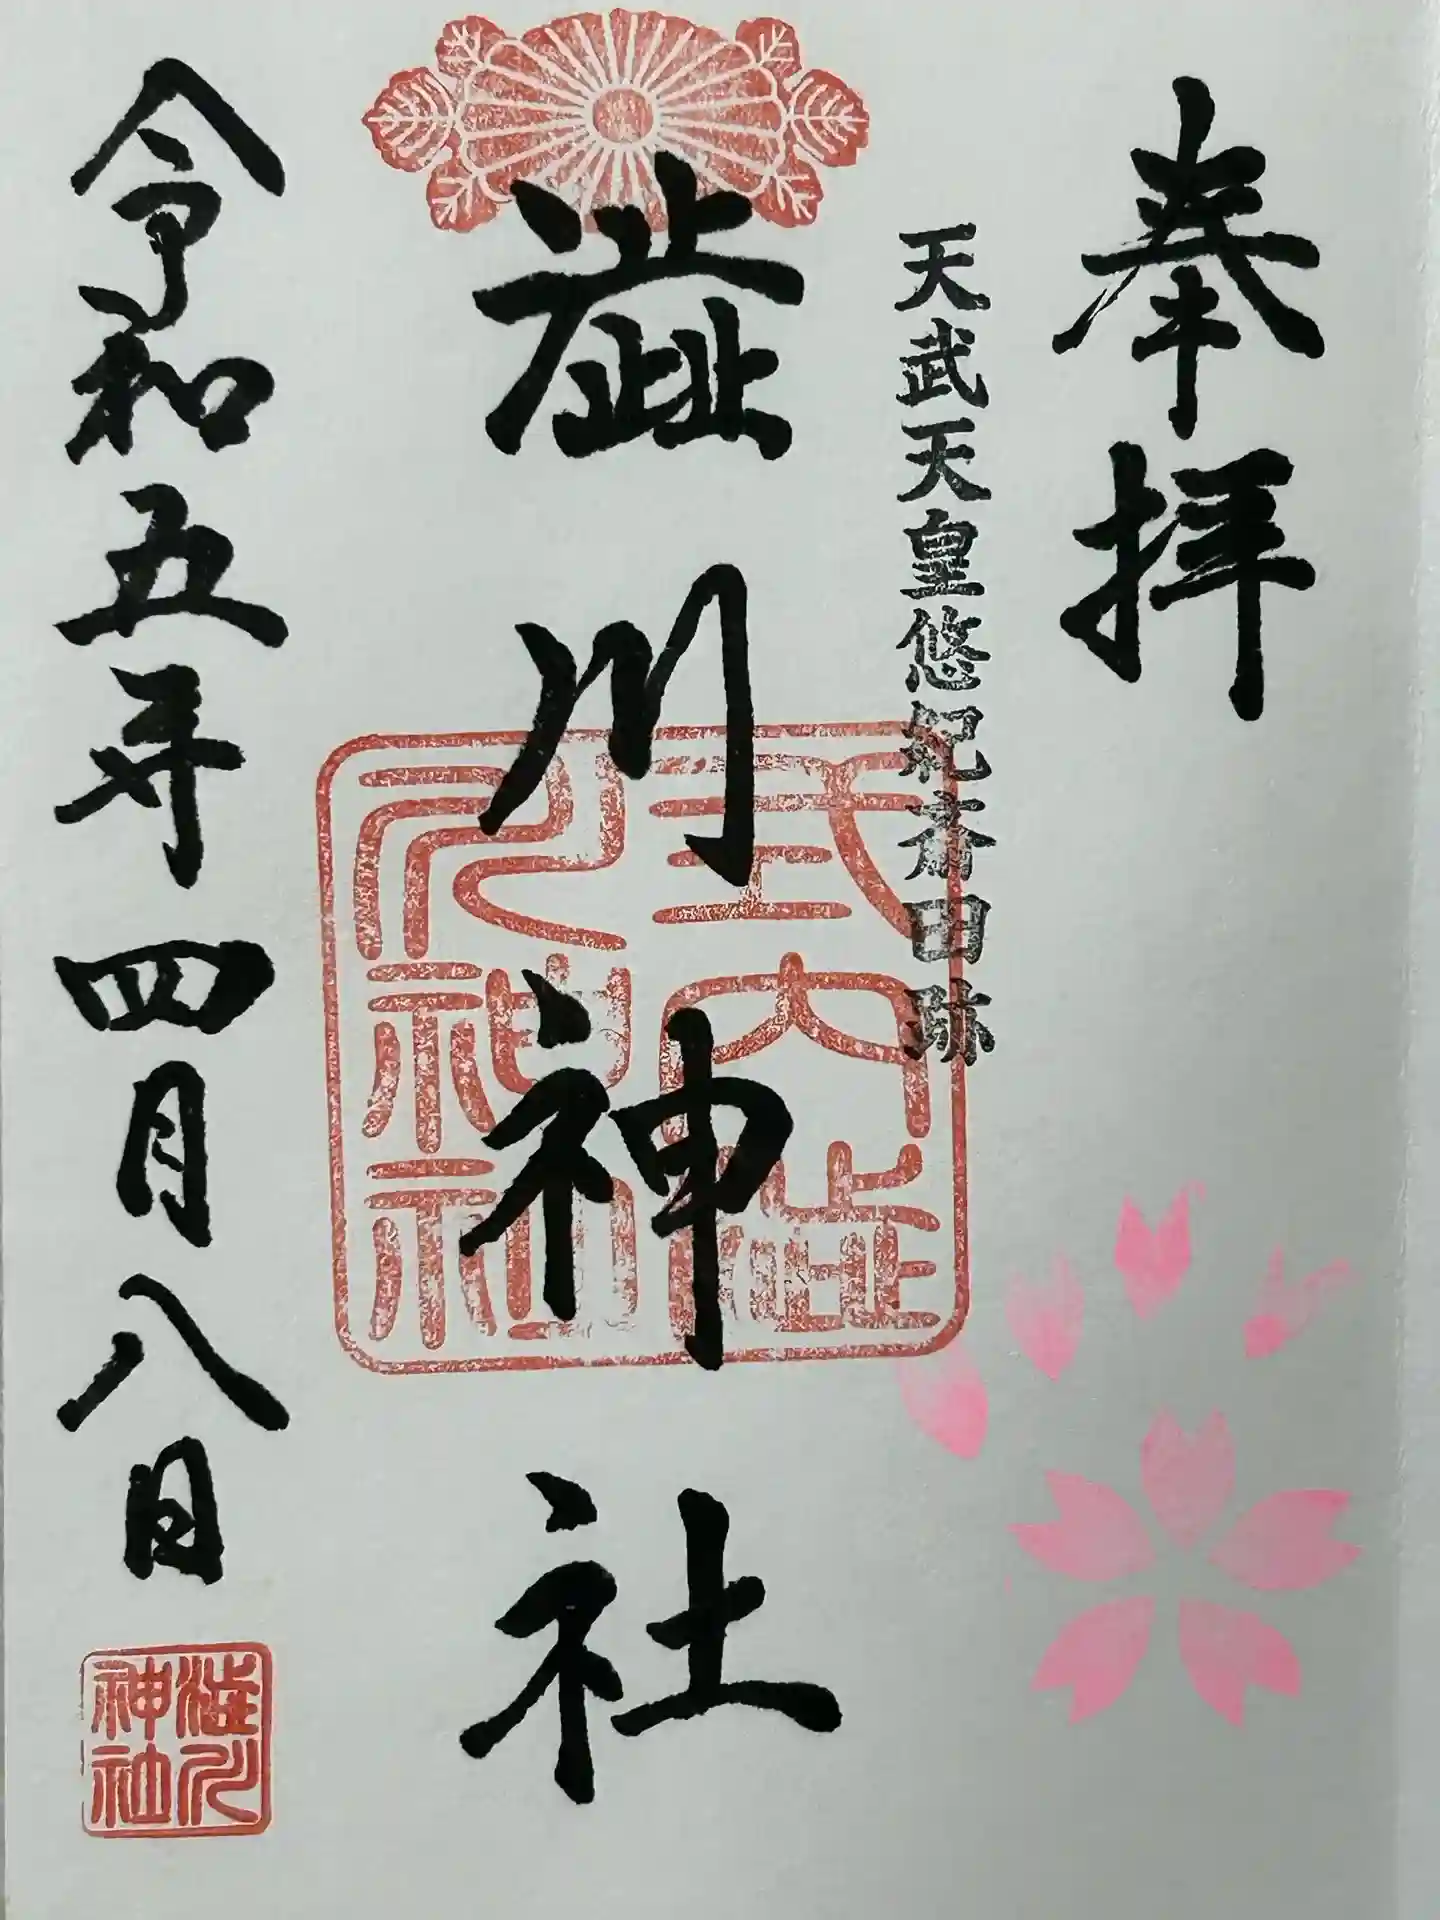 奉拝
天武天皇悠紀斎田跡
澁川神社
式内社
澁川神社
令和五年四月八日
澁川神社